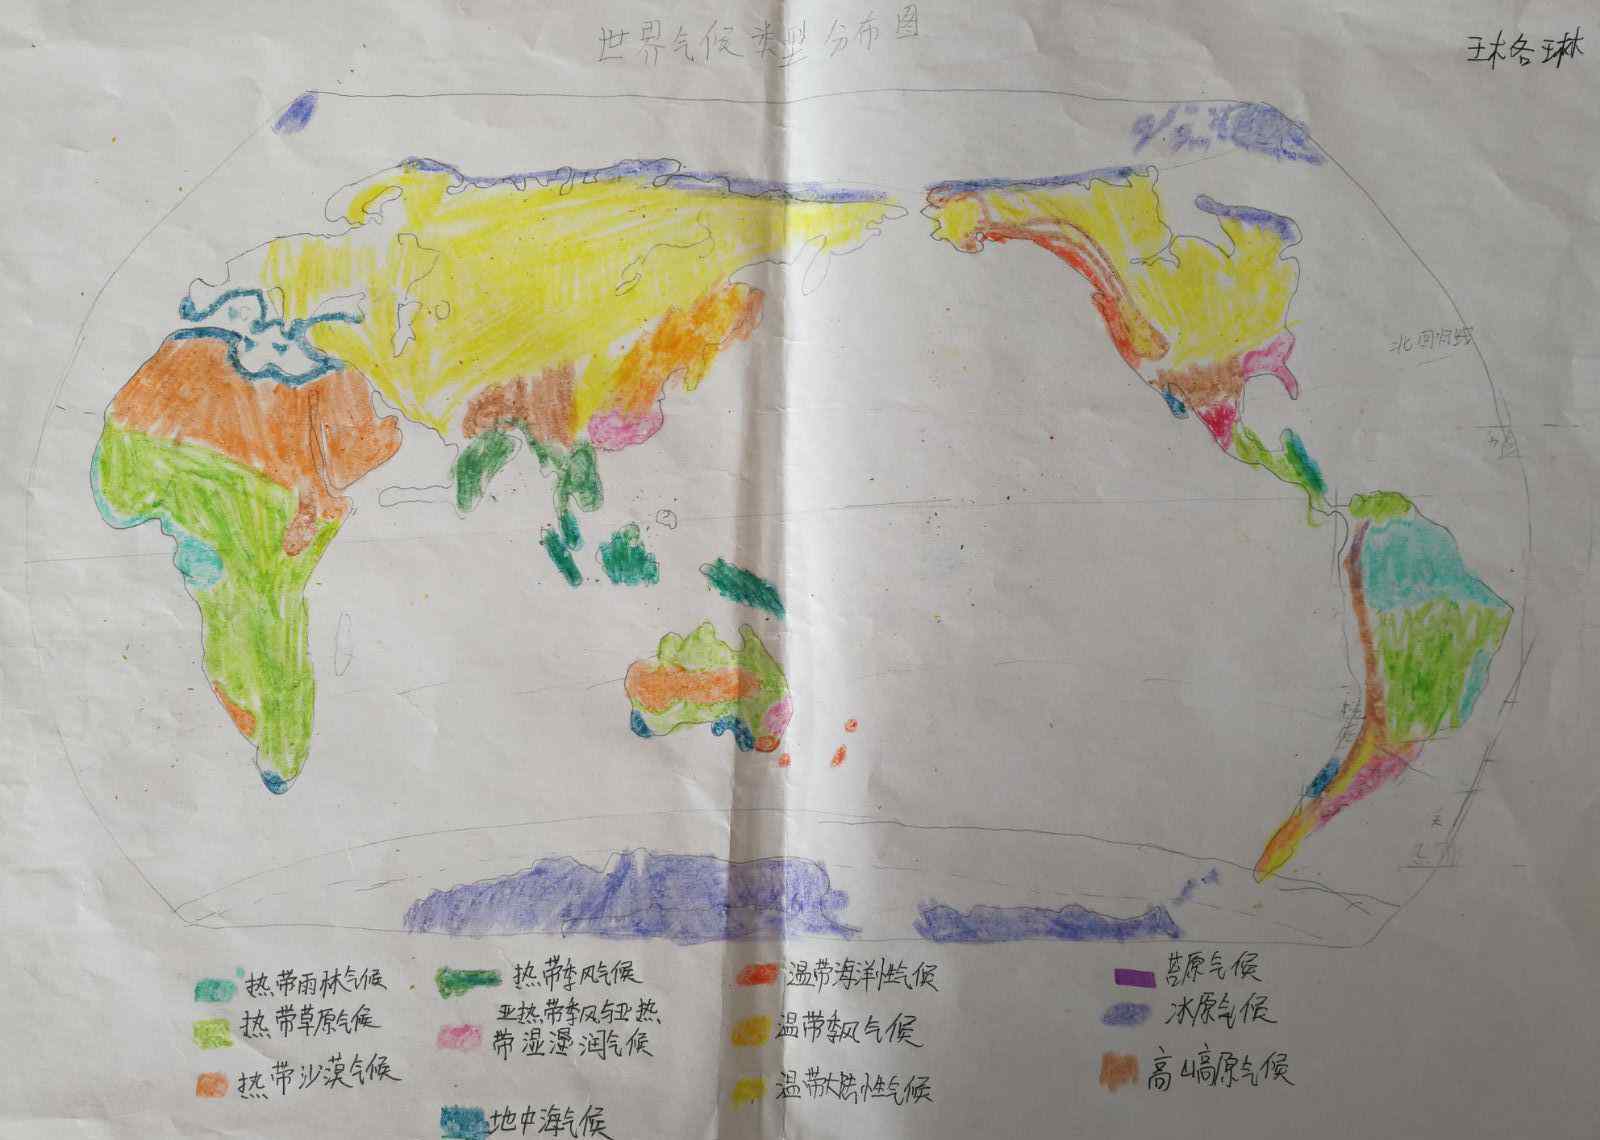 世界气候类型分布图
王格琳
北回归线
热带雨林气候
热带草原气候
热带沙漠气候
热带季风气候
亚热带季风与亚热
带湿湿润气候
地中海气候
温带海洋性气候
温带季风气候
温带大陆性气候
苔原气候
冰原气候
高山高原气候